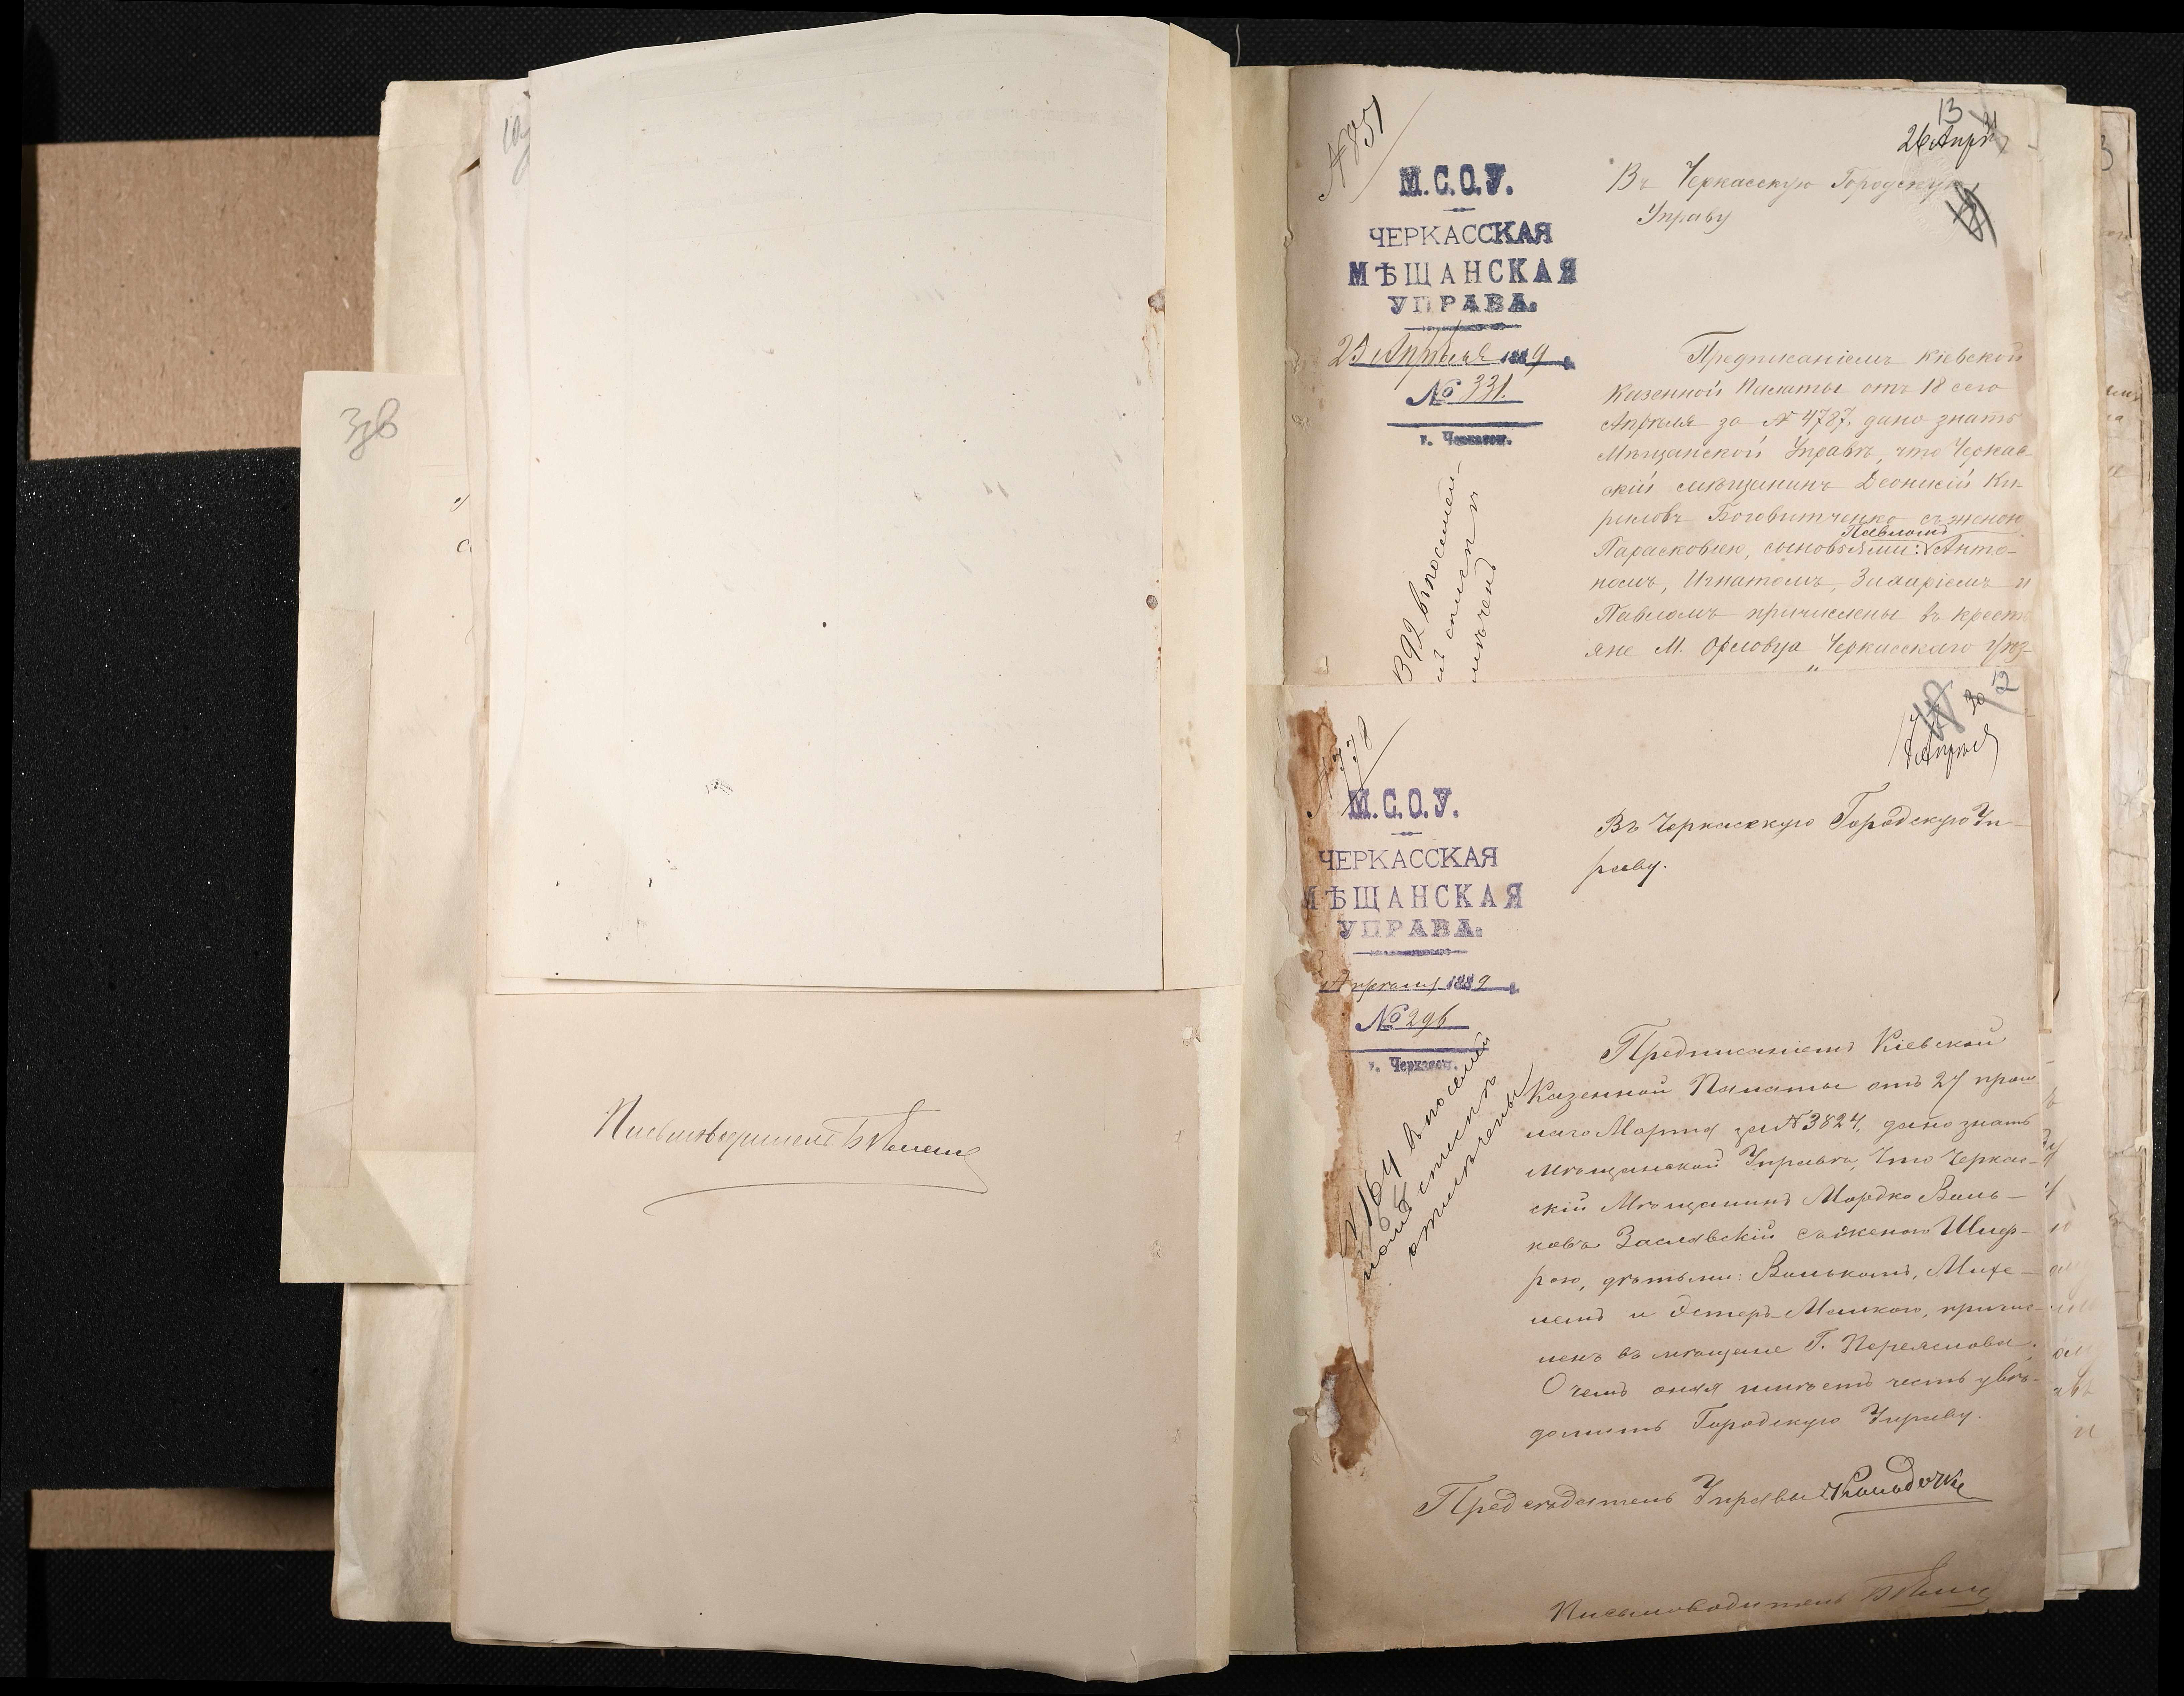 378
Письмоводитель
№ 851
13
26 Апр
М.С.О.У.
ЧЕРКАССКАЯ
МѢЩАНСКАЯ
УПРАВА.
25 Апрѣля 1889 г.
№ 331.
г. Черкассы.
Въ Черкасскую Городскую
Управу
Предписаніемъ Кіевской
Казенной Палаты отъ 18 сего
Апрѣля за № 4787, дано знать
Мѣщанской Управѣ, что Черкас-
скій мѣщанинъ Деонисій Ки-
риловъ съ женою
Парасковіею, сыновьями: Анто-
номъ, Игнатомъ, Захаріемъ и
Павломъ причислены въ крестъ
яне М. Орловца Черкасскаго Уѣз-
392 въ посемей-
спискѣ
мѣчено
№ 778
12
Апрѣля
М.С.О.У.
ЧЕРКАССКАЯ
МѢЩАНСКАЯ
УПРАВА.
Апрѣля 1889 г.
№ 296
г. Черкассы.
Въ Черкасскую Городскую Уп-
раву.
Предписаніемъ Кіевской
Казенной Палаты отъ 27 прош
лаго Марта за № 3824, дано знать
Мѣщанской Управѣ, что Черкас-
скій Мѣщанинъ Мордко Воль-
ковъ Заславскій съ женою Шиф-
рою, дѣтьми: Волькомъ, Михе-
лемъ и Эстеръ-Малкою, причис-
ленъ въ мѣщане Г. Переяслова.
О чемъ оная имѣетъ честь увѣ-
домить Городскую Управу.
№ 164 въ посемей
номъ спискѣ
отмѣчены
Предсѣдатель Управы
Письмоводитель